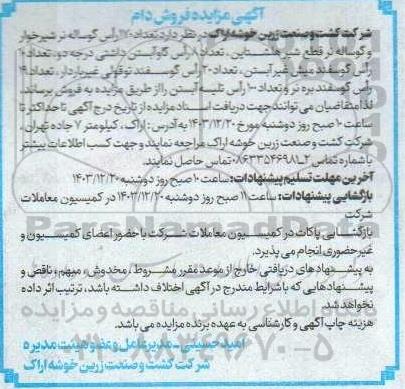 آگهی مزایده فروش دام
شرکت کشت و صنعت زرین خوشه اراک در نظر دارد تعداد ۱۷ رأس گوساله نر شیرخوار
و گوساله نر قطع شیر هلشتاین، تعداد ۸ رأس گاو آبستن داشتی درجه دو، تعداد ۲۰
رأس گوسفند میش غیر آبستن، تعداد ۲۰ رأس گوسفند توقولی غیرباردار، تعداد ۴
رأس گوسفند بره نر و تعداد ۱۰ رأس تلیسه آبستن را از طریق مزایده به فروش برساند،
لذا متقاضیان می توانند جهت دریافت اسناد مزایده از تاریخ درج آگهی تا حداکثر تا
ساعت ۱۰ صبح روز دوشنبه مورخ ۱۴۰۳/۱۲/۲۰ به آدرس: اراک، کیلومتر ۷ جاده تهران،
شرکت کشت و صنعت زرین خوشه اراک مراجعه نمایند و جهت کسب اطلاعات بیشتر
با شماره تماس ۲-۰۸۶۳۳۵۴۶۹۸۱ تماس حاصل نمایند.
آخرین مهلت تسلیم پیشنهادات: ساعت ۱۰ صبح روز دوشنبه ۱۴۰۳/۱۲/۲۰
بازگشایی پیشنهادات: ساعت ۱۱ صبح روز دوشنبه ۱۴۰۳/۱۲/۲۰ در کمیسیون معاملات
شرکت
بازگشایی پاکات در کمیسیون معاملات شرکت با حضور اعضای کمیسیون و
غیر حضوری انجام می پذیرد.
به پیشنهاد های دریافتی خارج از موعد مقرر مشروط، مخدوش، مبهم، ناقص و
پیشنهادهایی که با شرایط مندرج در آگهی اختلاف داشته باشد، ترتیب اثر داده
نخواهد شد.
هزینه چاپ آگهی و کارشناسی به عهده برنده مزایده می باشد.
امید حسینی - مدیرعامل و عضو هیئت مدیره
شرکت کشت و صنعت زرین خوشه اراک